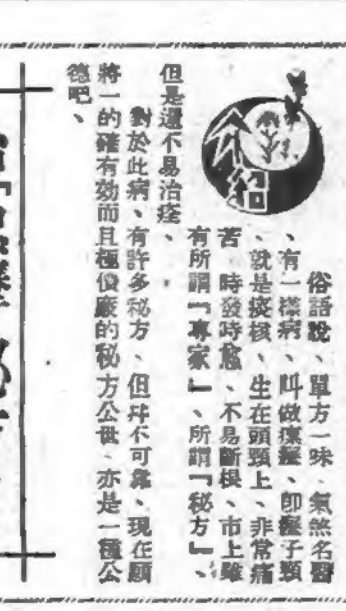 介紹
俗語說、單方一味、氣煞名醫
、有一樣病、叫做瘰癧、卽癧子頸
、就是痰核、生在頭頸上、非常痛
苦、時發時愈、不易斷根、市上雖
有所謂『專家』、所謂『秘方』、
但是還不易治痊、
對於此病、有許多秘方、但幷不可靠、現在願
將一的確有効而且極價廉的秘方公世、亦是一種公
德吧、